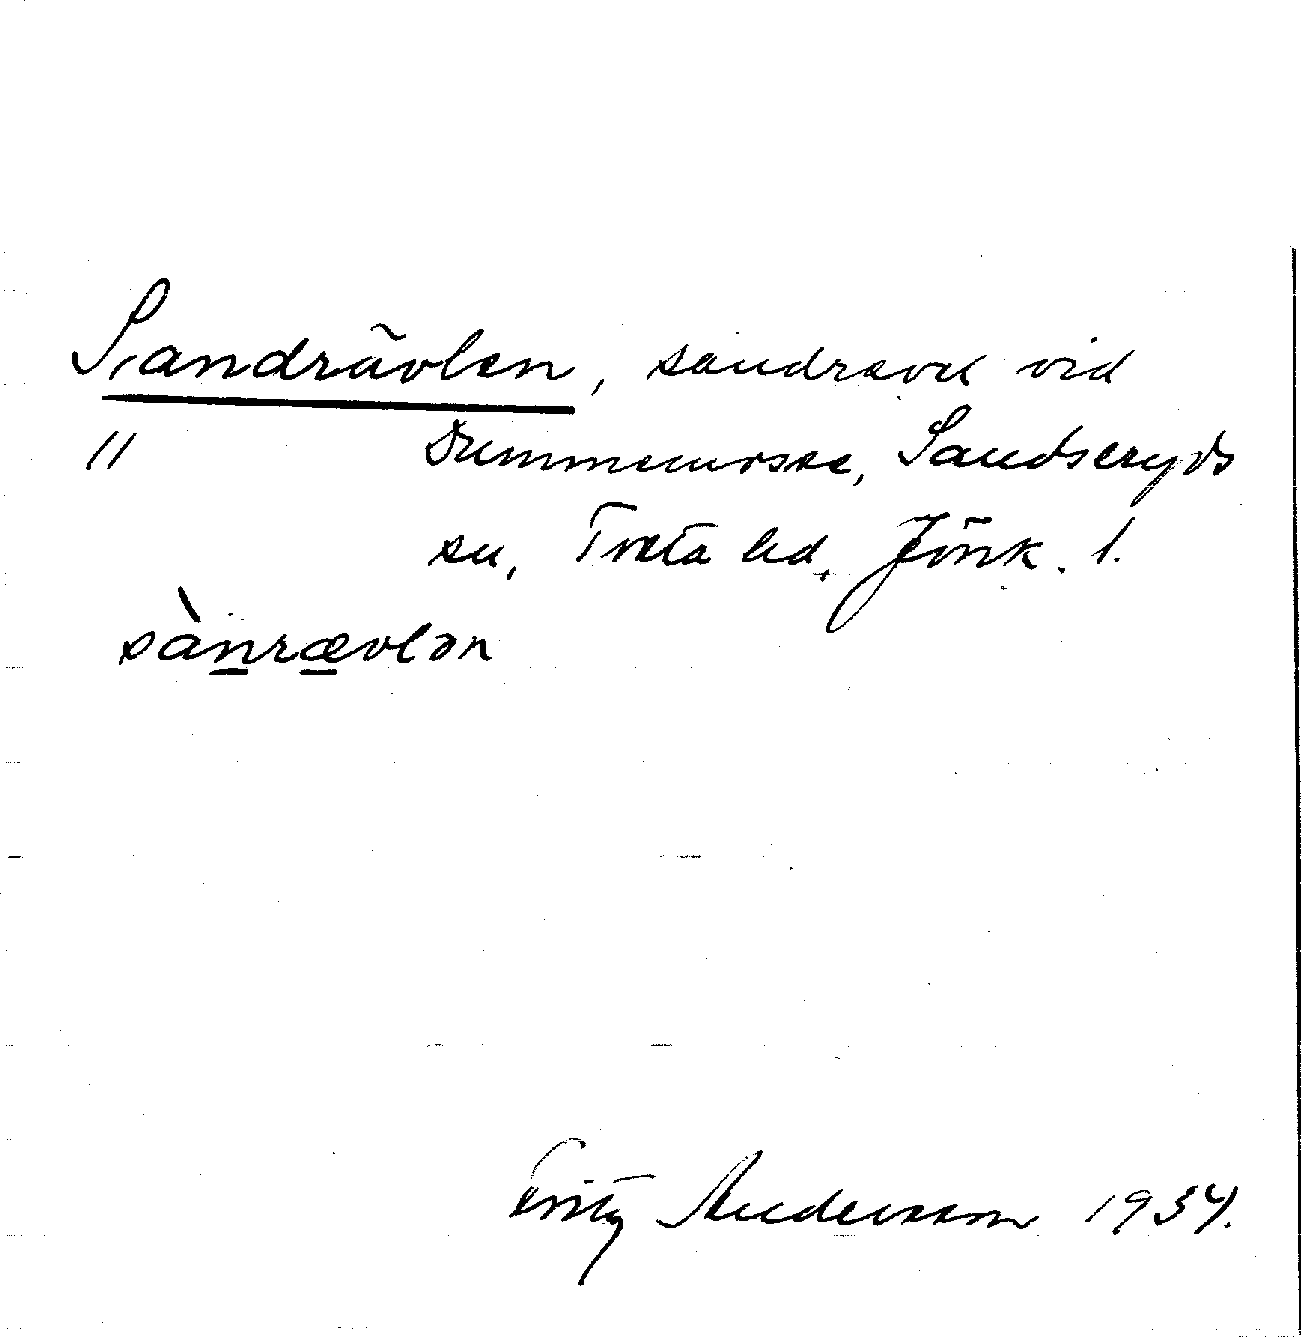 Sandrävlen, sandrevel vid
" Dummemosse, Sandseryds
sn, Tveta hd, Jönk. l.
sànrævlən
Fritz Andersson 1934.